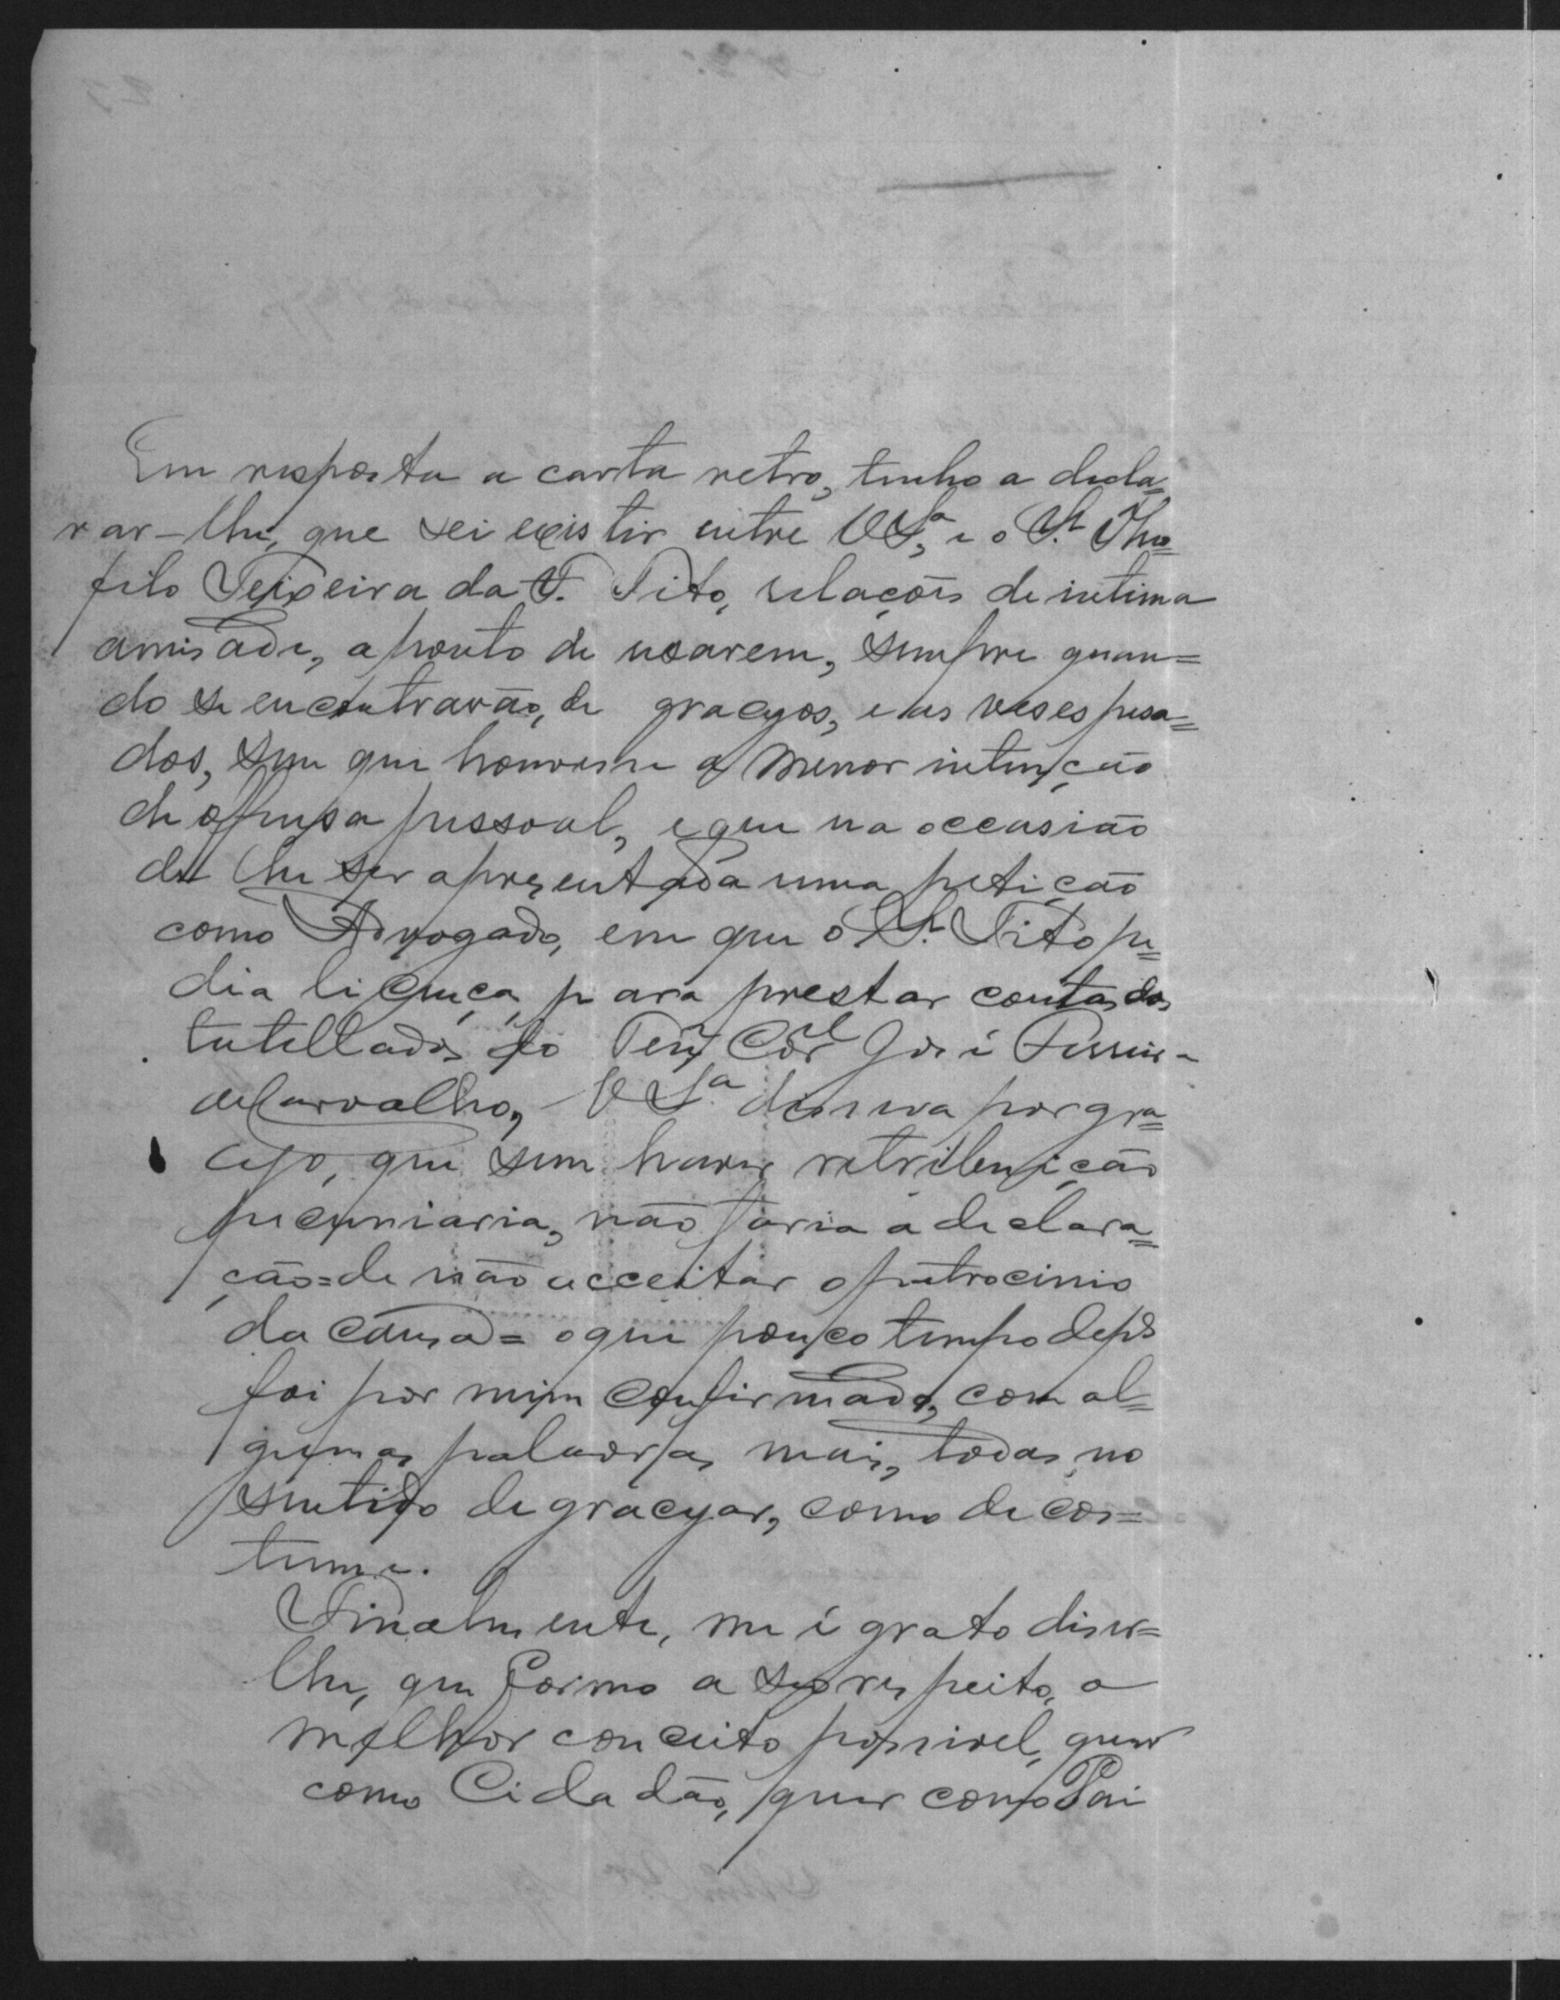 Em resposta a carta retro, tenho a decla=
rar-lhe, que sei existir entre VSª, e o Sr. Theo=
filo Teixeira da F. Tito, relações de intima
amisade, a ponto de usarem, sempre quan=
do se encontravão, de gracejos, e as veses pesa=
dos, sem que houvesse a menor intenção
de offensa pessoal, e que na occasião
de lhe ser apresentada uma petição
como Advogado, em que o Sr. Tito pe=
dia licença para prestar contas dos
tutellados do Tene Corel José Pereira
de Carvalho, VSª dissera por gra=
cejo, que sem haver retribuição
pecuniaria, não faria a declara=
ção=de não acceitar o patrocinio
da causa= o que pouco tempo deps
foi por mim confirmado, com al=
gumas palavras mais, todas no
sentido de gracejar, como de cos=
tume.
Finalmente, me é grato diser=
lhe, que formo a seo respeito, o
melhor conceito possivel, quer
como Cidadão, quer como Pai